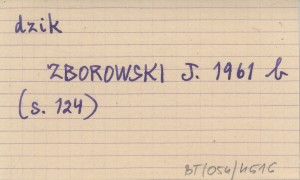 dzik
ZBOROWSKI J. 1961 b
(s. 124)
BT/054/4516